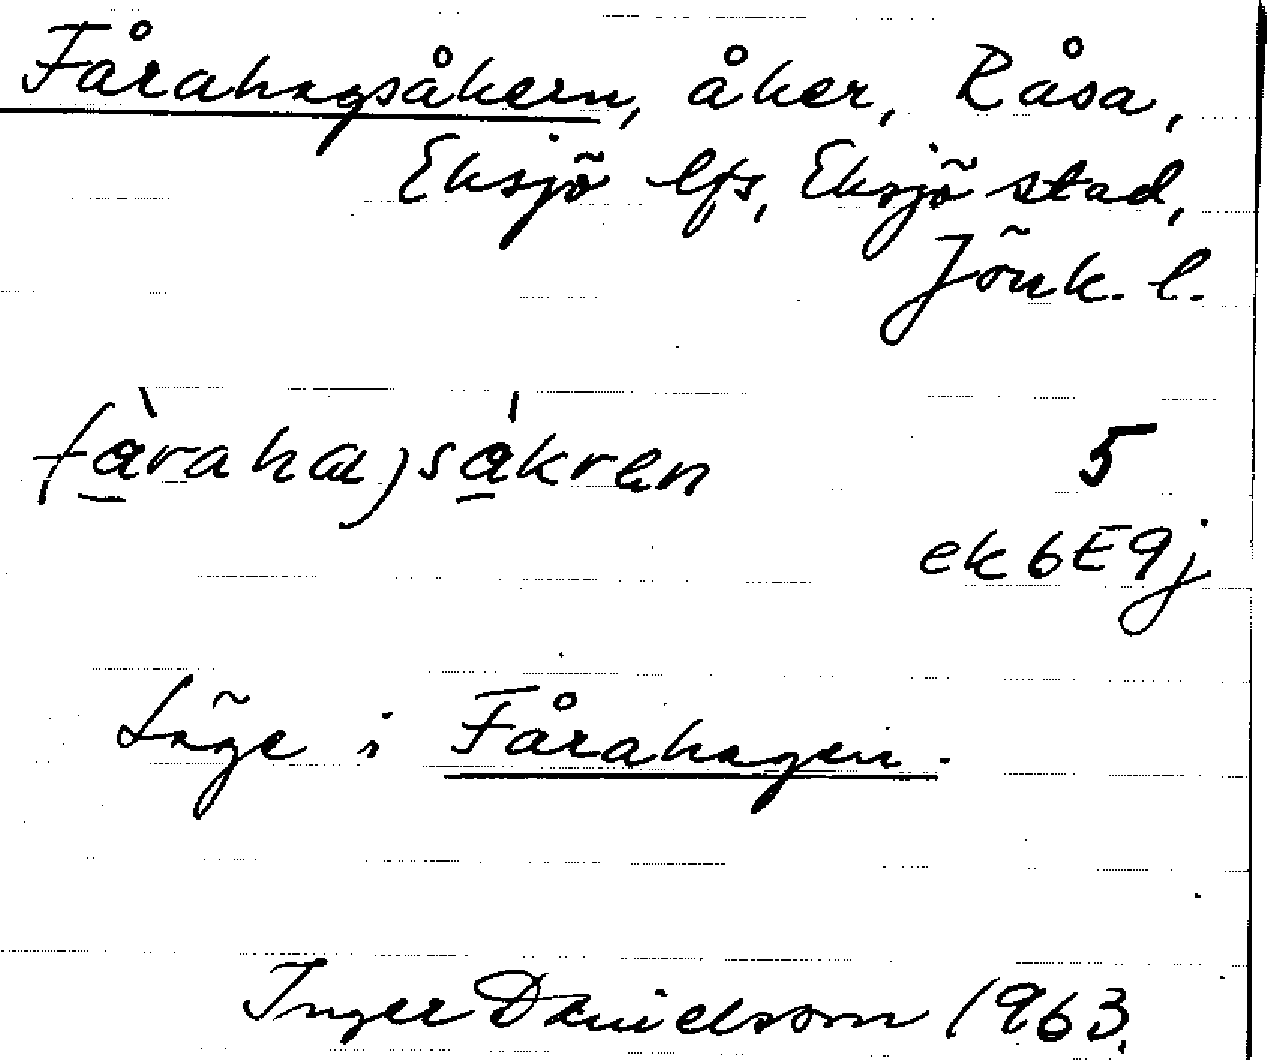 Fårahagsåkern, åker, Råsa,
Eksjö lfs, Eksjö stad,
Jönk. l.
fàraha)sákren 5
ek 6E9j
Läge i Fårahagen.
Inger Danielsson 1963.